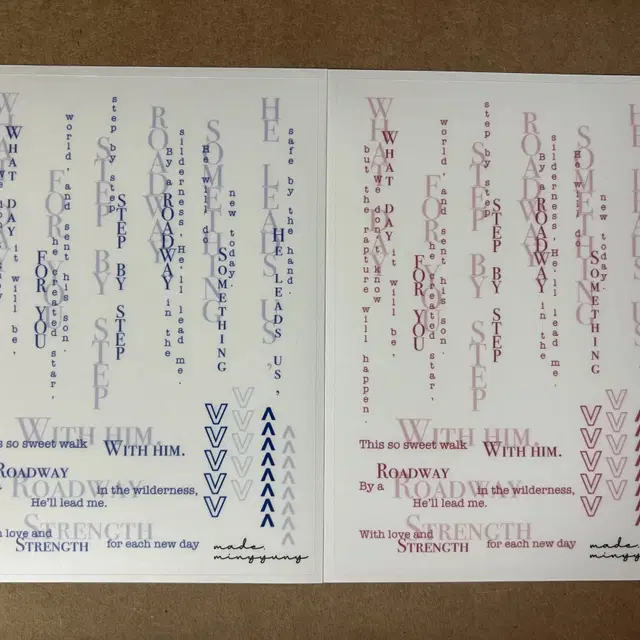 WHAT DAY it will be,
world, and sent his son.
FOR YOU
he created star,
FOR YOU
step by step
STEP BY STEP
STEP BY STEP
ROADWAY
silderness, He'll lead me.
By a ROADWAY in the
SOMETHING
Be will do
SOMETHING
new today.
HE LEADS US,
HE LEADS US,
safe by the hand.
WITH HIM.
so sweet walk WITH HIM.
ROADWAY
ROADWAY in the wilderness,
He'll lead me.
STRENGTH
love and STRENGTH for each new day
made.
minyyuny
WHAT DAY it will be,
but the rapture will happen.
we don't know
world, and sent his son.
FOR YOU
he created star,
FOR YOU
step by step
STEP BY STEP
STEP BY STEP
ROADWAY
silderness, He'll lead me.
By a ROADWAY in the
SOMETHING
Be will do
SOMETHING
new today.
WITH HIM.
This so sweet walk WITH HIM.
ROADWAY
By a ROADWAY in the wilderness,
He'll lead me.
STRENGTH
With love and STRENGTH for each new day
made.